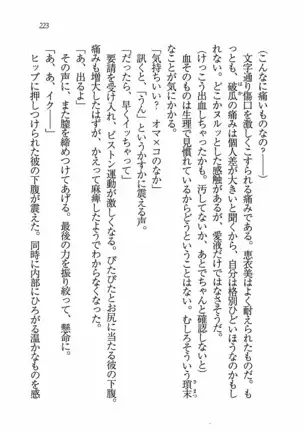 223
(こんなに痛いものなの？――)
文字通り傷口を激しくこすられる痛みである。恵衣美はよく耐えられたものだ。も
っとも、破瓜の痛みは個人差が大きいと聞くから、自分は格別ひどいほうなのかもし
れない。どこかヌルッとした感触があるが、愛液だけではなさそうだ。
(けっこう出血しちゃったかも。汚してないか、あとでちゃんと確認しないと)
血そのものは生理で見慣れているから、どうということはない。むしろそういう瑣末
なことが気にかかる。
「気持ちいい？　オマ×コのなか」
訊くと、「うん」というかすかに震える声。
「だったら、早くイッちゃって」
要請を受け入れ、ピストン運動が激しくなる。ぴたぴたとお尻に当たる彼の下腹。
痛みも増大したはずが、かえって麻痺したようでわからなくなった。
「あ、出るよ」
その声に、また膣を締めつけてあげる。最後の力を振り絞って、懸命に。
「あ、あ、イク――」
ヒップに押しつけられた彼の下腹が震えた。同時に内部にひろがる温かなものを感